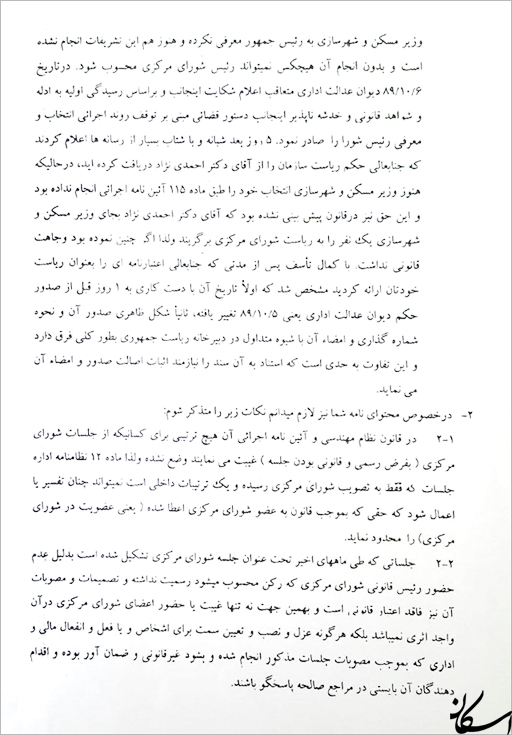 وزیر مسکن و شهرسازی به رئیس جمهور معرفی نکرده و هنوز هم این تشریفات انجام نشده
است و بدون انجام آن هیچکس نمیتواند رئیس شورای مرکزی محسوب شود. درتاریخ
۸۹/۱۰/۶ دیوان عدالت اداری متعاقب اعلام شکایت اینجانب و براساس رسیدگی اولیه به ادله
و شواهد قانونی و خدشه ناپذیر اینجانب دستور قضائی مبنی بر توقف روند اجرائی انتخاب و
معرفی رئیس شورا را صادر نمود. ۵ روز بعد شبانه و با شتاب بسیار از رسانه ها اعلام کردند
که جنابعالی حکم ریاست سازمان را از آقای دکتر احمدی نژاد دریافت کرده اید، درحالیکه
هنوز وزیر مسکن و شهرسازی انتخاب خود را طبق ماده ۱۱۵ آئین نامه اجرائی انجام نداده بود
و این حق نیز درقانون پیش بینی نشده بود که آقای دکتر احمدی نژاد بجای وزیر مسکن و
شهرسازی یک نفر را به ریاست شورای مرکزی برگزیند ولذا اگر چنین نموده بود وجاهت
قانونی نداشت. با کمال تأسف پس از مدتی که جنابعالی اعتبارنامه ای را بعنوان ریاست
خودتان ارائه کردید مشخص شد که اولاً تاریخ آن با دست کاری به ۱ روز قبل از صدور
حکم دیوان عدالت اداری یعنی ۸۹/۱۰/۵ تغییر یافته، ثانیاً شکل ظاهری صدور آن و نحوه
شماره گذاری و امضاء آن با شیوه متداول در دبیرخانه ریاست جمهوری بطور کلی فرق دارد
و این تفاوت به حدی است که استناد به آن سند را نیازمند اثبات اصالت صدور و امضاء آن
می نماید.
۲- درخصوص محتوای نامه شما نیز لازم میدانم نکات زیر را متذکر شوم:
۲-۱ در قانون نظام مهندسی و آئین نامه اجرائی آن هیچ ترتیبی برای کسانیکه از جلسات شورای
مرکزی ( بفرض رسمی و قانونی بودن جلسه ) غیبت می نمایند وضع نشده ولذا ماده ۱۲ نظامنامه اداره
جلسات که فقط به تصویب شورای مرکزی رسیده و یک ترتیبات داخلی است نمیتواند چنان تفسیر یا
اعمال شود که حقی که بموجب قانون به عضو شورای مرکزی اعطا شده ( یعنی عضویت در شورای
مرکزی) را محدود نماید.
۲-۲ جلساتی که طی ماههای اخیر تحت عنوان جلسه شورای مرکزی تشکیل شده است بدلیل عدم
حضور رئیس قانونی شورای مرکزی که رکن محسوب میشود رسمیت نداشته و تصمیمات و مصوبات
آن نیز فاقد اعتبار قانونی است و بهمین جهت نه تنها غیبت یا حضور اعضای شورای مرکزی درآن
واجد اثری نمیباشد بلکه هرگونه عزل و نصب و تعیین سمت برای اشخاص و یا فعل و انفعال مالی و
اداری که بموجب مصوبات جلسات مذکور انجام شده و بشود غیرقانونی و ضمان آور بوده و اقدام
دهندگان آن بایستی در مراجع صالحه پاسخگو باشند.
اسکان